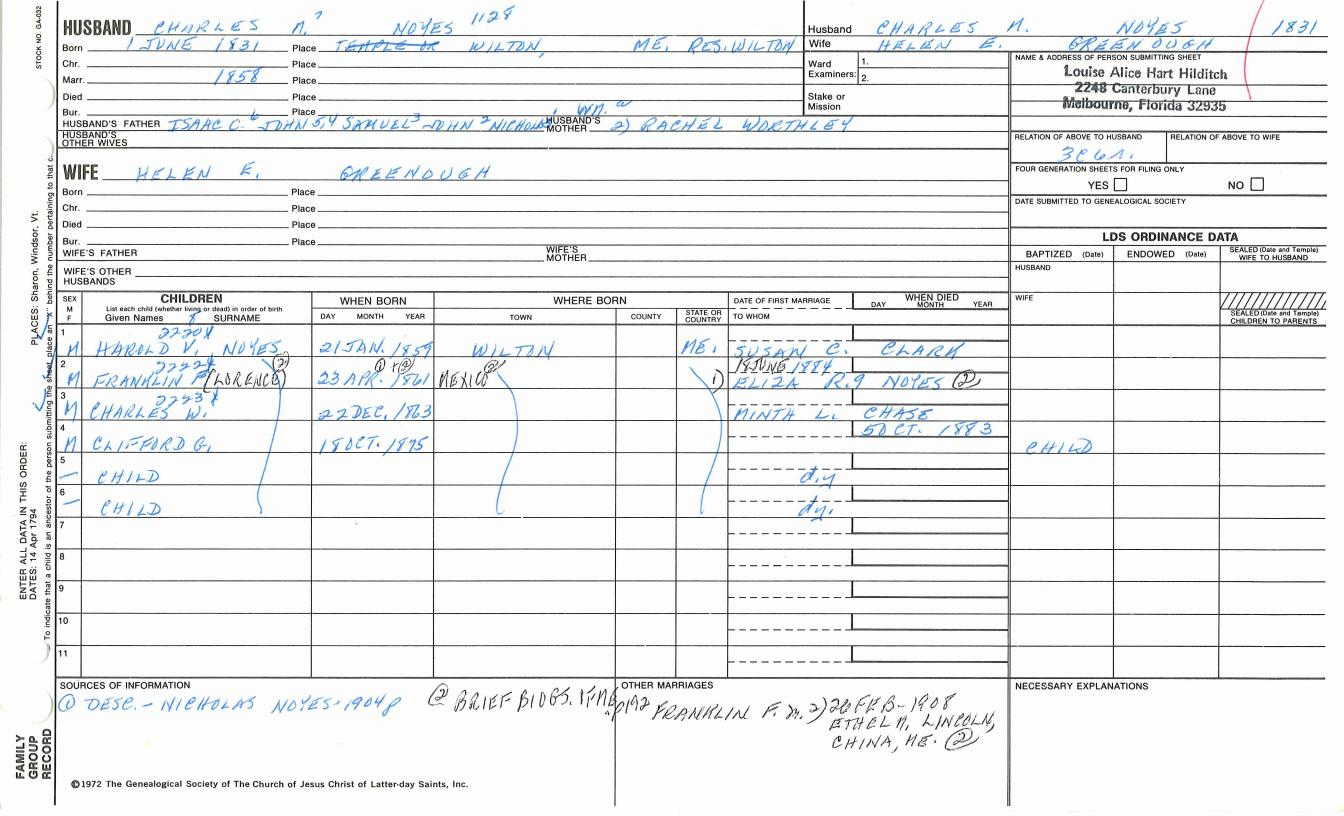 STOCK NO GA-032
HUSBAND CHARLES M.⁷ NOYES 1128
Born 1 JUNE 1831 Place TEMPLE OR WILTON, ME. RES. WILTON
Chr. Place
Marr. 1858 Place
Died Place
Bur. Place
HUSBAND'S FATHER ISAAC C.⁶ JOHN 5,4 SAMUEL³ JOHN ² NICHOLAS 1 WM. a HUSBAND'S MOTHER 2) RACHEL WORTHLEY
HUSBAND'S OTHER WIVES
WIFE HELEN E. GREENOUGH
Born Place
Chr. Place
Died Place
Bur. Place
WIFE'S FATHER WIFE'S MOTHER
WIFE'S OTHER HUSBANDS
Husband CHARLES M. NOYES 1831
Wife HELEN E. GREENOUGH
Ward Examiners: 1.
2.
Stake or Mission
NAME & ADDRESS OF PERSON SUBMITTING SHEET
Louise Alice Hart Hilditch
2248 Canterbury Lane
Melbourne, Florida 32935
RELATION OF ABOVE TO HUSBAND RELATION OF ABOVE TO WIFE
3C6R.
FOUR GENERATION SHEETS FOR FILING ONLY
YES NO
DATE SUBMITTED TO GENEALOGICAL SOCIETY
LDS ORDINANCE DATA
BAPTIZED (Date) ENDOWED (Date) SEALED (Date and Temple) WIFE TO HUSBAND
HUSBAND
WIFE
SEALED (Date and Temple) CHILDREN TO PARENTS
SEX M F CHILDREN WHEN BORN WHERE BORN DATE OF FIRST MARRIAGE WHEN DIED
List each child (whether living or dead) in order of birth
Given Names 8 SURNAME DAY MONTH YEAR TOWN COUNTY STATE OR COUNTRY TO WHOM DAY MONTH YEAR
1 2220X
M HAROLD V. NOYES 21 JAN. 1859 WILTON ME. SUSAN C. CLARK
2 2222X (2) 1 + 2 (2) 18 JUNE 1884
M FRANKLIN F (LORENCE) 23 APR. 1861 MEXICO 1) ELIZA R. 9 NOYES (2)
3 2223X
M CHARLES W. 22 DEC. 1863 MINTH L. CHASE
4 5 OCT. 1883
M CLIFFORD G. 18 OCT. 1875 CHILD
5
— CHILD d.y
6
— CHILD dy.
7
8
9
10
11
SOURCES OF INFORMATION
(1) DESC. - NICHOLAS NOYES - 1904 (2) BRIEF BIOGS. p192
OTHER MARRIAGES
FRANKLIN F. m. 2) 26 FEB - 1908
ETHEL M. LINCOLN,
CHINA, ME. (2)
NECESSARY EXPLANATIONS
©1972 The Genealogical Society of The Church of Jesus Christ of Latter-day Saints, Inc.
FAMILY GROUP RECORD
ENTER ALL DATA IN THIS ORDER:
DATES: 14 Apr 1794
PLACES: Sharon, Windsor, Vt.
To indicate that a child is an ancestor of the person submitting the sheet, place an "X" behind the number pertaining to that c